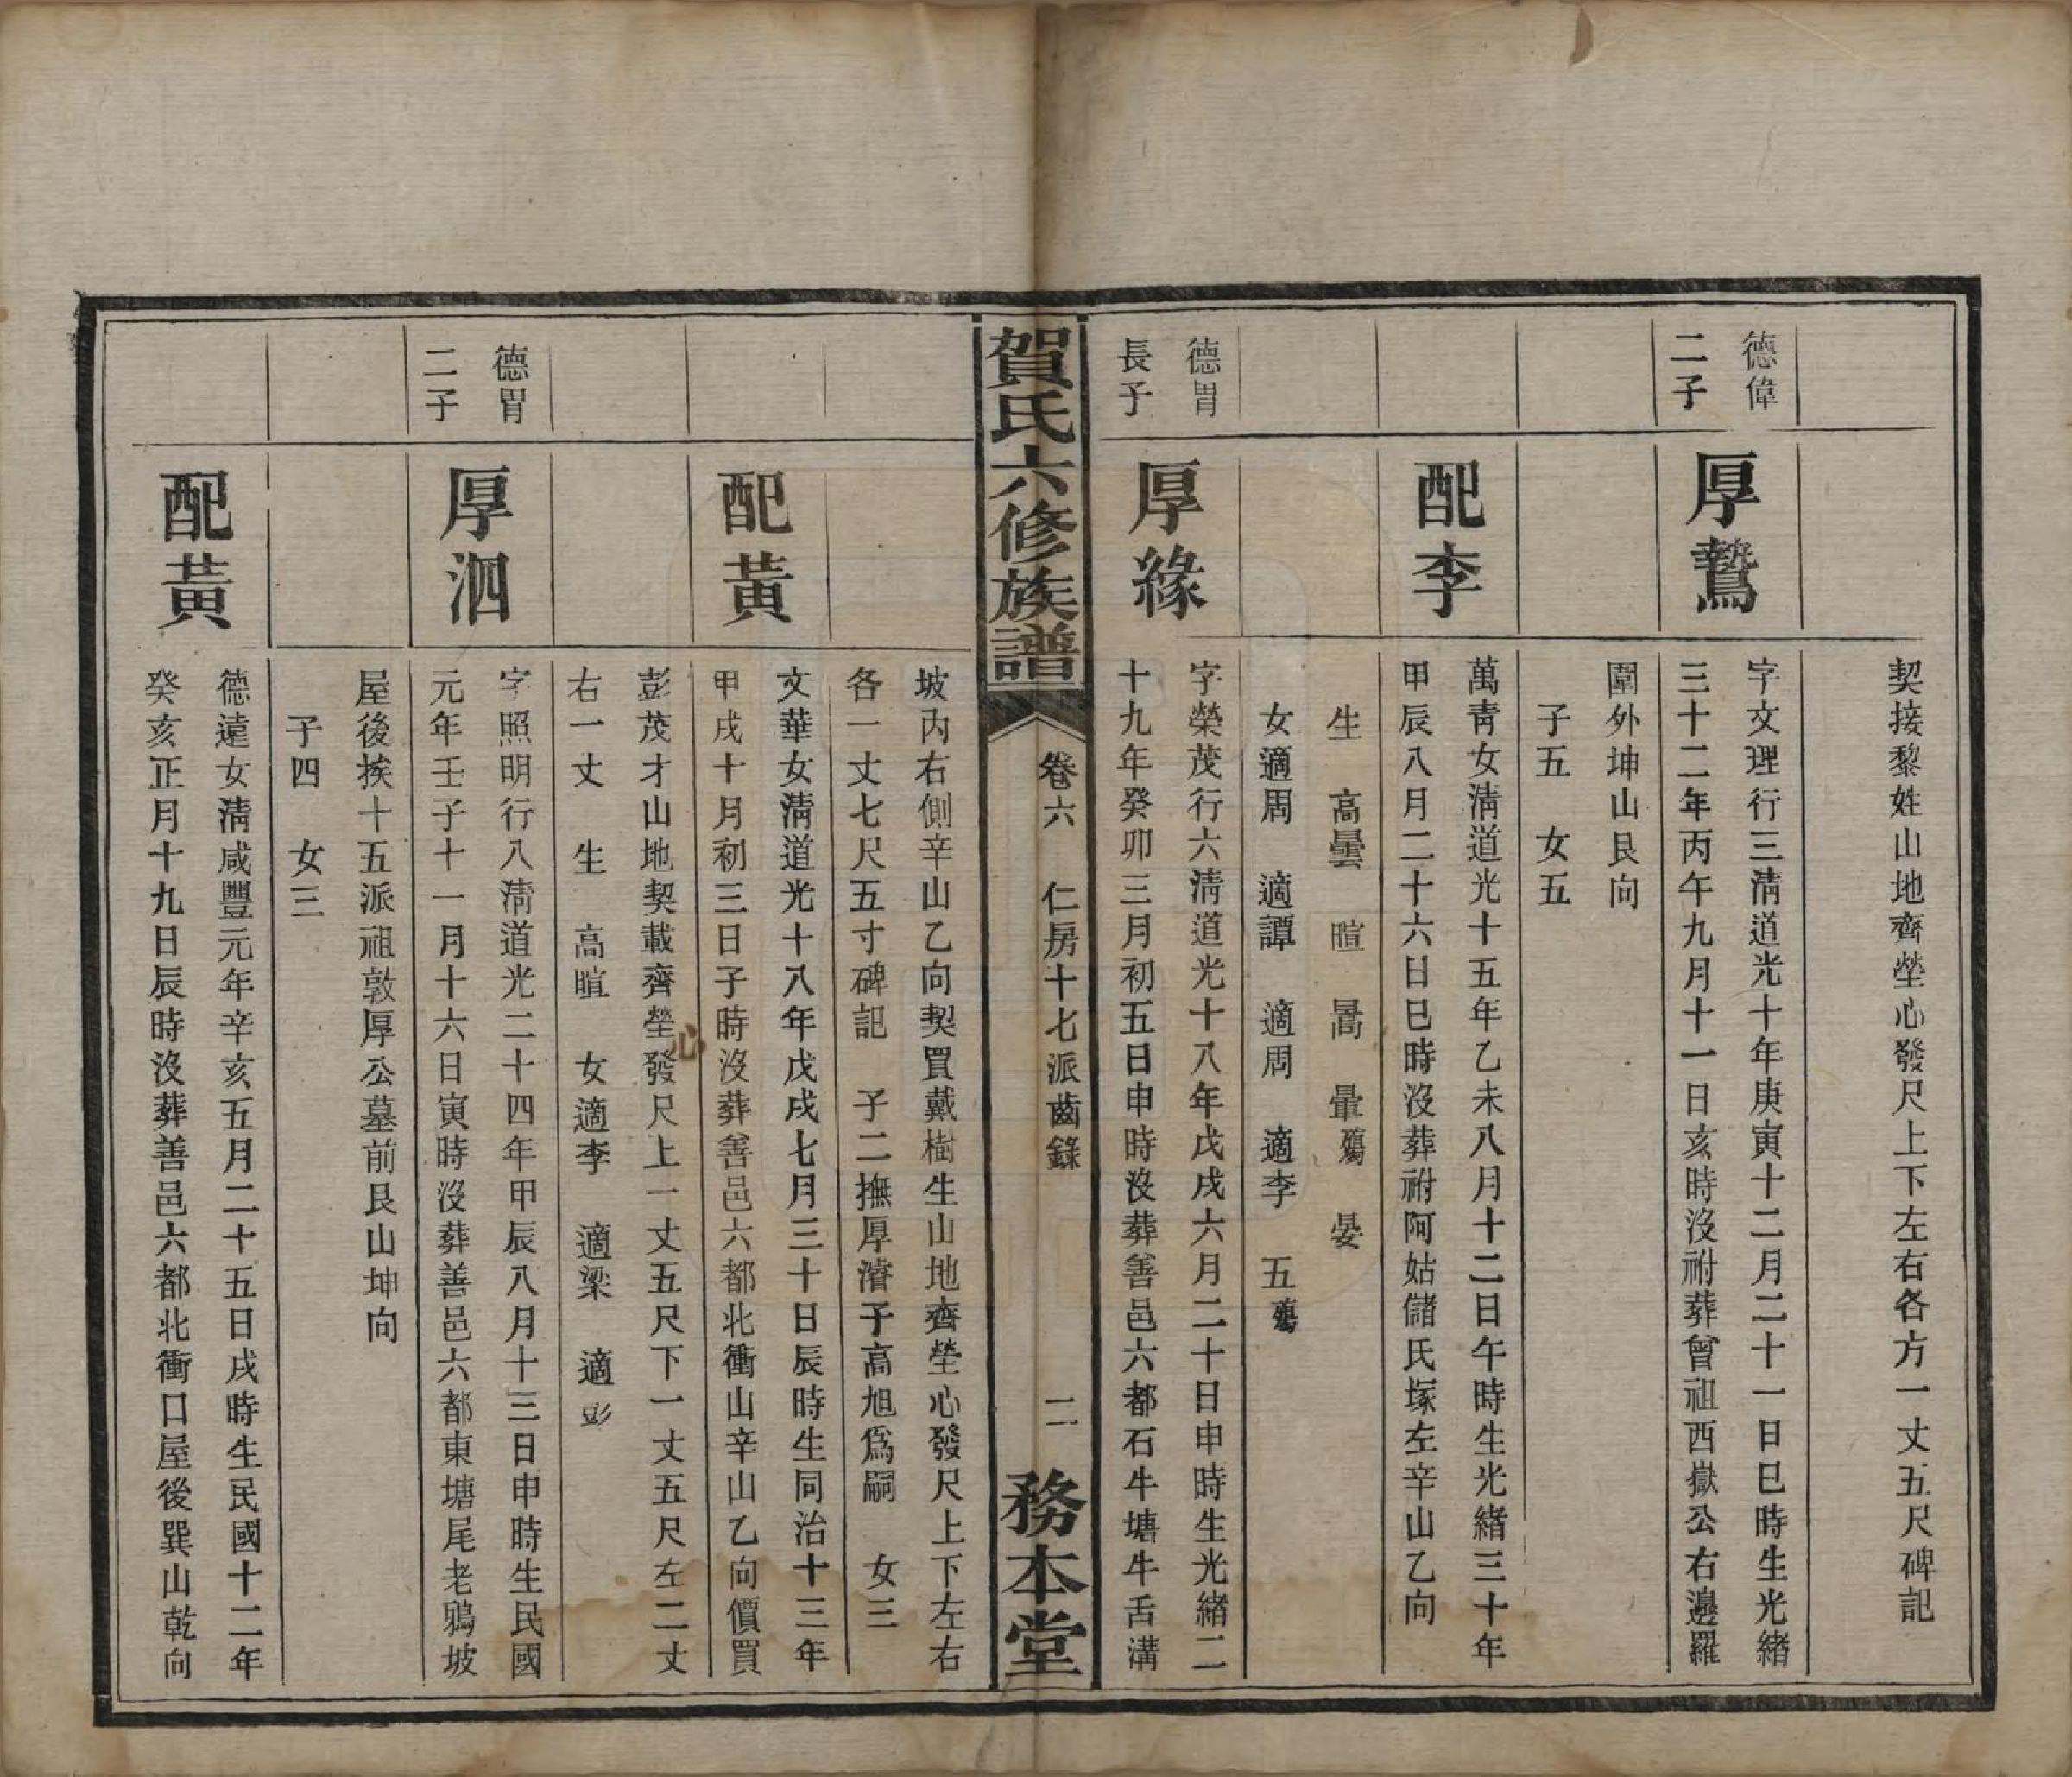 契接黎姓山地齊塋心發尺上下左右各方一丈五尺碑記
德偉
二子
厚鷙
字文理行三淸道光十年庚寅十二月二十一日巳時生光緒
三十二年丙午九月十一日亥時沒祔葬曾祖西嶽公右邊羅
圍外坤山艮向
子五　女五
配李
萬靑女淸道光十五年乙未八月十二日午時生光緒三十年
甲辰八月二十六日巳時沒葬祔阿姑儲氏塚左辛山乙向
生　高曇　暄　暠　暈殤　晏
女適周　適譚　適周　適李　五殤
德胃
長子
厚緣
字榮茂行六淸道光十八年戊戌六月二十日申時生光緒二
十九年癸卯三月初五日申時沒葬善邑六都石牛塘牛舌溝
賀氏六修族譜
卷六　仁房十七派齒錄
二
務本堂
坡內右側辛山乙向契買戴樹生山地齊塋心發尺上下左右
各一丈七尺五寸碑記　子二撫厚濬子高旭爲嗣　女三
配黃
文華女淸道光十八年戊戌七月三十日辰時生同治十三年
甲戌十月初三日子時沒葬善邑六都北衝山辛山乙向價買
彭茂才山地契載齊塋心發尺上一丈五尺下一丈五尺左二丈
右一丈　生　高暄　女適李　適梁　適彭
德胃
二子
厚泗
字照明行八淸道光二十四年甲辰八月十三日申時生民國
元年壬子十一月十六日寅時沒葬善邑六都東塘尾老鴉坡
屋後挨十五派祖敦厚公墓前艮山坤向
子四　女三
配黃
德遠女淸咸豐元年辛亥五月二十五日戌時生民國十二年
癸亥正月十九日辰時沒葬善邑六都北衝口屋後巽山乾向